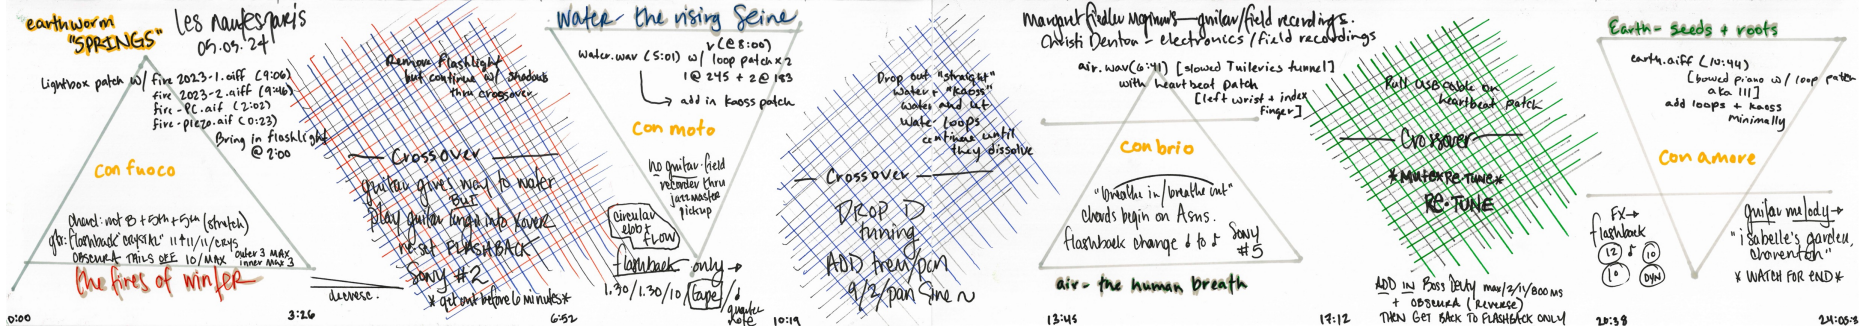 earthworm
"SPRINGS"
Les nautes paris
05.03.24
Lightbox patch w/ fire 2023-1.aiff (9:06)
fire 2023-2.aiff (9:46)
fire-PC.aif (2:02)
fire-piezo.aif (0:23)
Bring in flashlight
@ 2:00
con fuoco
chord: root B + 5th + 5th (stretch)
gtr: flashback "CRYSTAL" 11+11/11/CRYS
OBSCURA TAILS OFF 10/MAX outer 3 MAX
inner MAX 3
the fires of winter
0:00
decresc.
3:26
Remove flashlight
but continue w/ shadows
thru crossover
Crossover
guitar gives way to water
BUT
play guitar
re-set FLASHBACK
Sony #2
*get out before 6 minutes*
6:52
Water - the rising Seine
water.wav (5:01) w/ loop patch x 2
√(@ 8:00)
1 @ 245 + 2 @ 183
add in kaoss patch
con moto
no guitar - field
recorder thru
jazzmaster
pickup
circular
ebb +
FLOW
flashback only →
1.30/1.30/10/tape/♩
quarter
note
10:19
Drop out "straight"
water + "kaoss"
water and let
water loops
continue until
they dissolve
Crossover
DROP D
tuning
ADD trem/pan
9/2/pan sine ~
Margaret Fiedler McGinnis - guitar/field recordings.
Christi Denton - electronics/field recordings
air.wav (6:41) [slowed Tuileries tunnel]
with heartbeat patch
[left wrist + index
finger]
con brio
"breathe in/breathe out"
chords begin on Asus.
flashback change ♩ to ♪ Sony
#5
air - the human breath
13:45
Pull USB cable on
heartbeat patch
Crossover
*Mute x Re-TUNE*
RE-TUNE
ADD IN Boss Delay max/2/11/800 MS
+ OBSCURA (REVERSE)
THEN GET BACK TO FLASHBACK ONLY
17:12
Earth - seeds + roots
earth.aiff (10:44)
[bowed piano w/ loop patch
aka 111]
add loops + kaoss
minimally
con amore
FX→
flashback
12 ♩ 10
10 DYN
guitar melody →
"isabelle's garden,
charenton"
* WATCH FOR END *
20:38
24:05